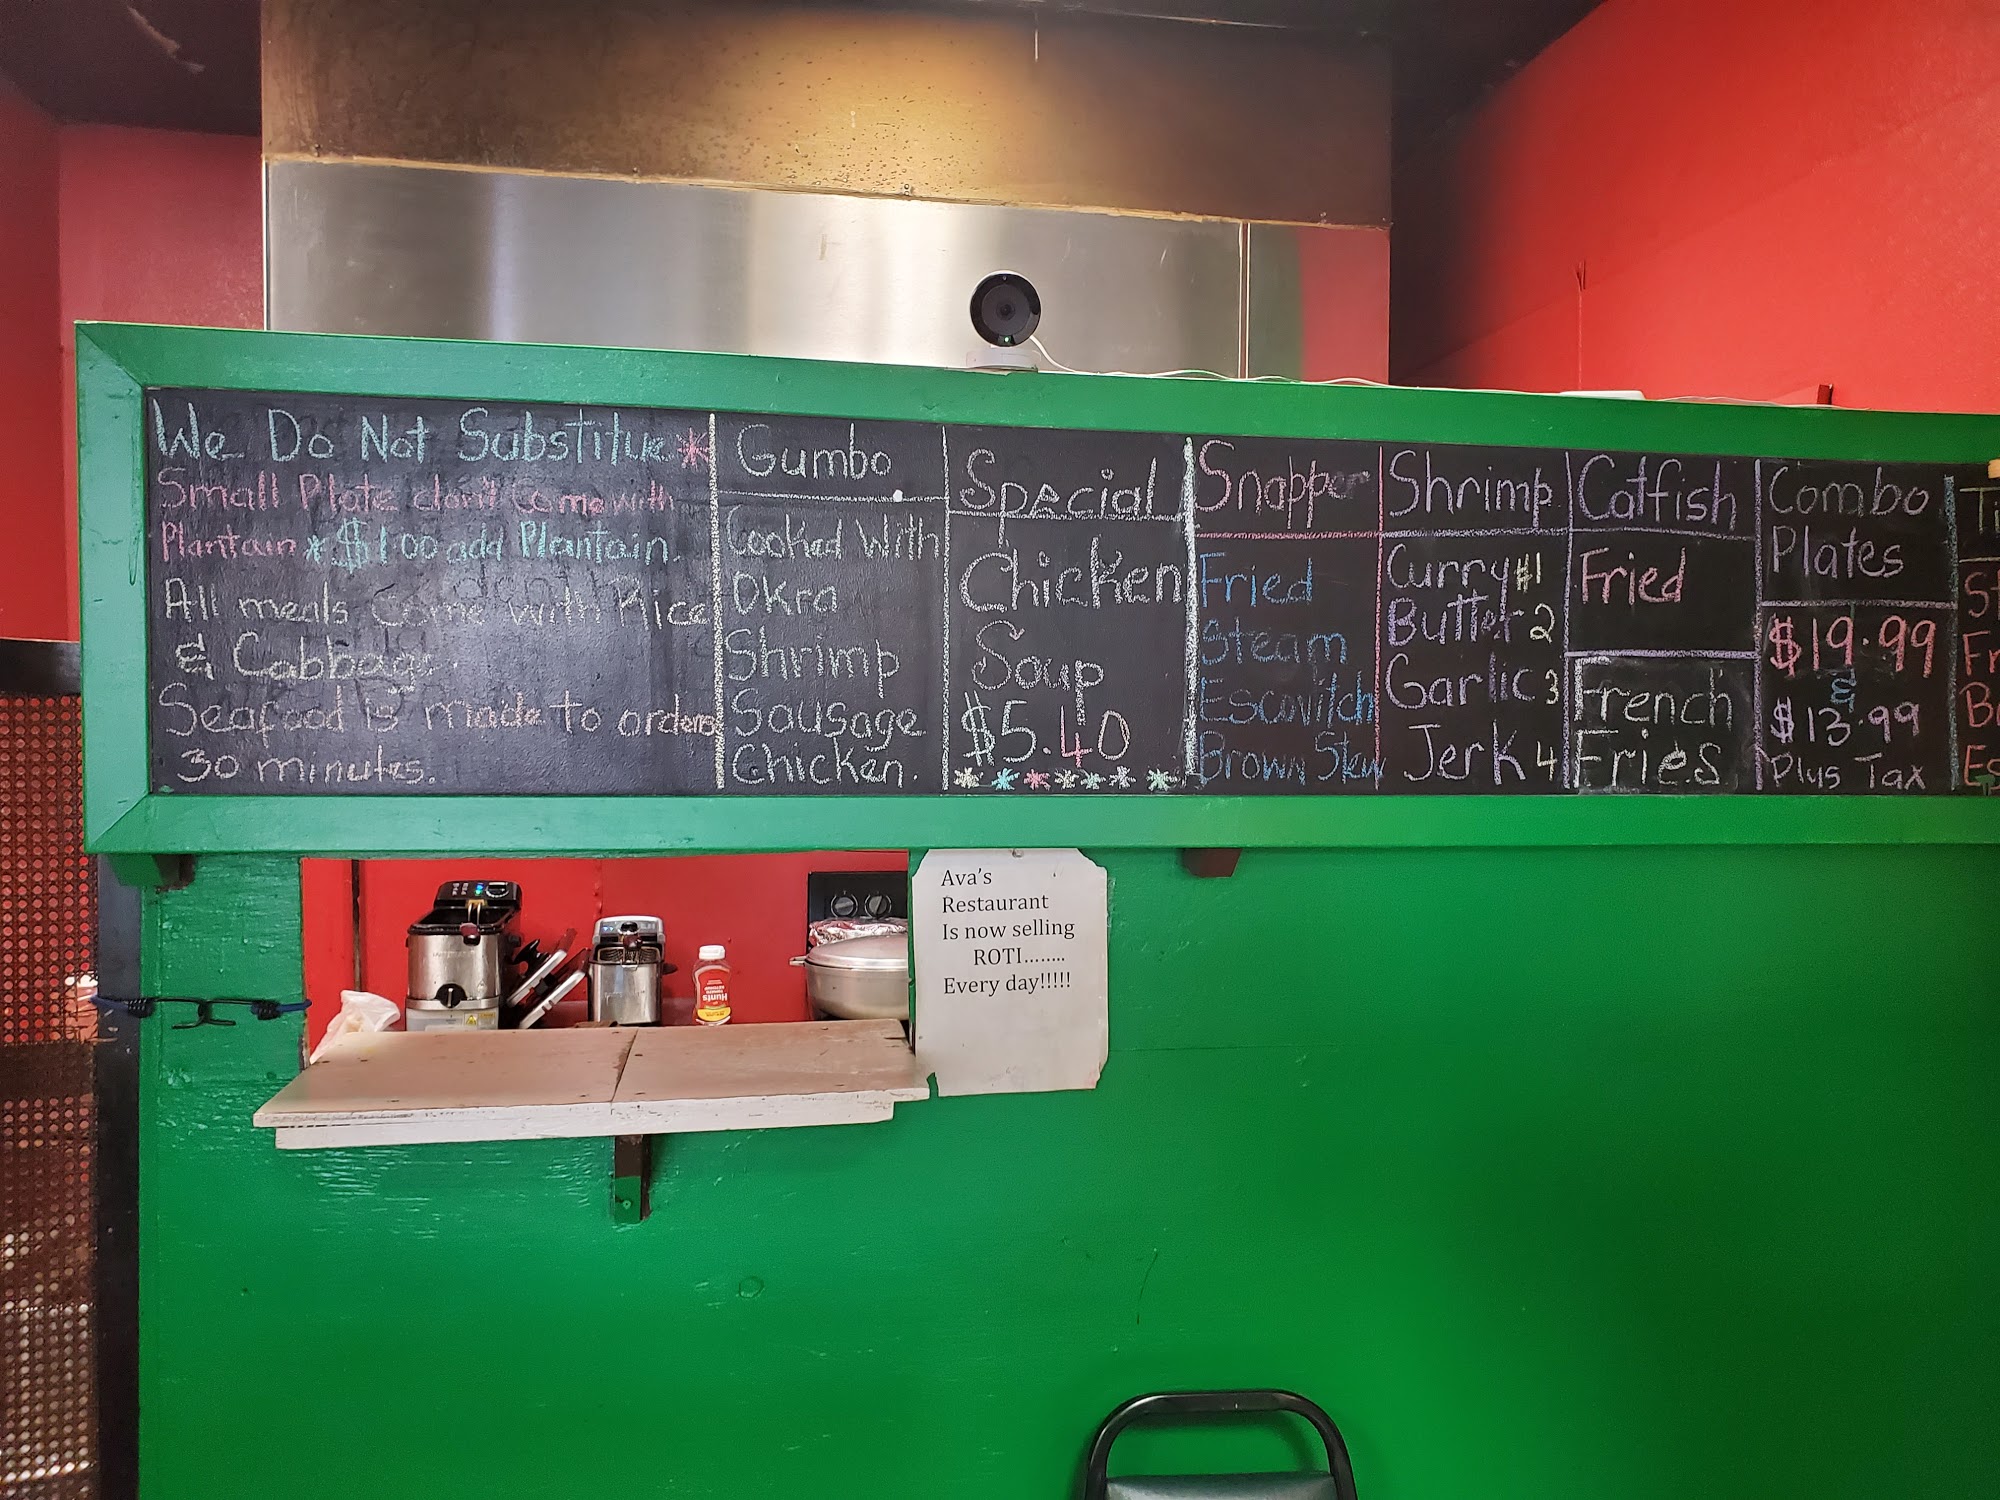 We Do Not Substitue *
Small Plate don't come with
Plantain * $1.00 add Plantain.
All meals come with Rice
& Cabbage.
Seafood is made to orders
30 minutes.
Gumbo
Cooked With
Okra
Shrimp
Sausage
Chicken.
Special
Chicken
Soup
$5.40
Snapper
Fried
Steam
Escovitch
Brown Stew
Shrimp
Curry #1
Butter 2
Garlic 3
Jerk 4
Catfish
Fried
French
Fries
Combo
Plates
$19.99
&
$13.99
Plus Tax
Ava's
Restaurant
Is now selling
ROTI........
Every day!!!!!
Hunt's